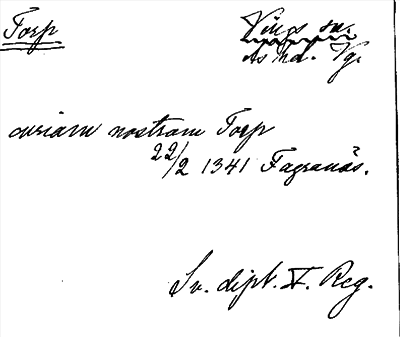 Torp
Vings sn.
Ås hd. Vg.
curiam nostram Torp
22/2 1341 Fagranäs.
Sv. dipl. V. Reg.